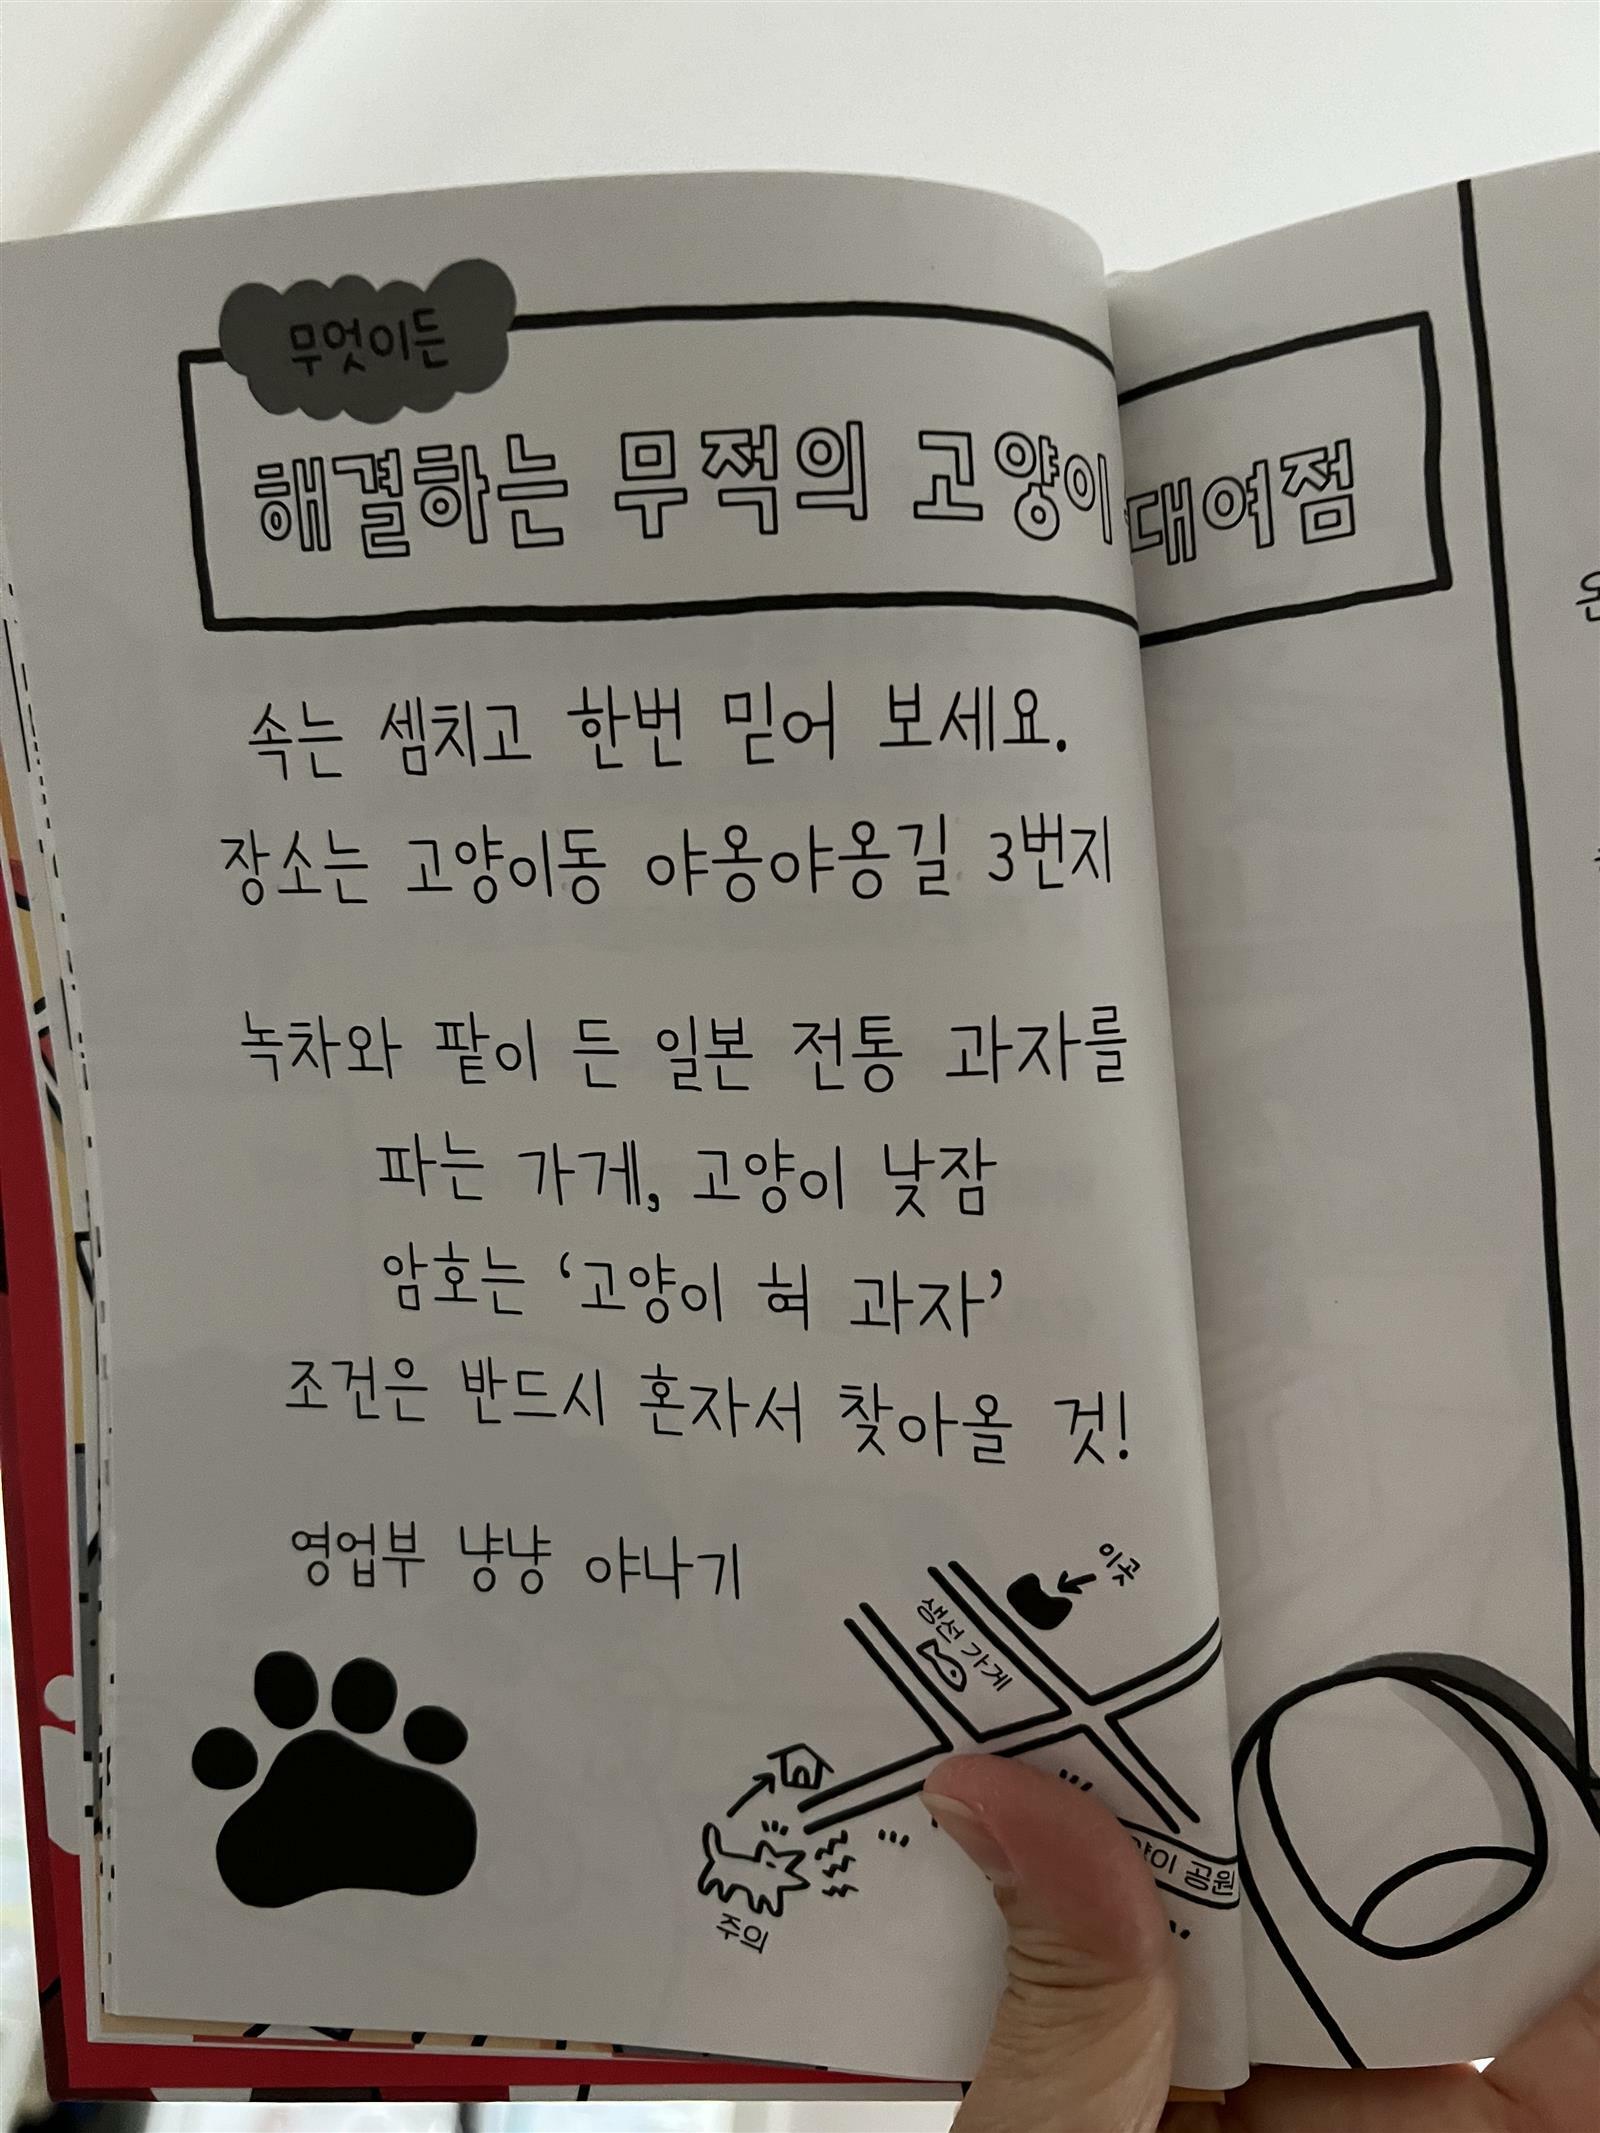 무엇이든
해결하는 무적의 고양이 대여점
속는 셈치고 한번 믿어 보세요.
장소는 고양이동 야옹야옹길 3번지
녹차와 팥이 든 일본 전통 과자를
파는 가게, 고양이 낮잠
암호는 ‘고양이 혀 과자’
조건은 반드시 혼자서 찾아올 것!
영업부 냥냥 야나기
이곳
생선 가게
공원
주의